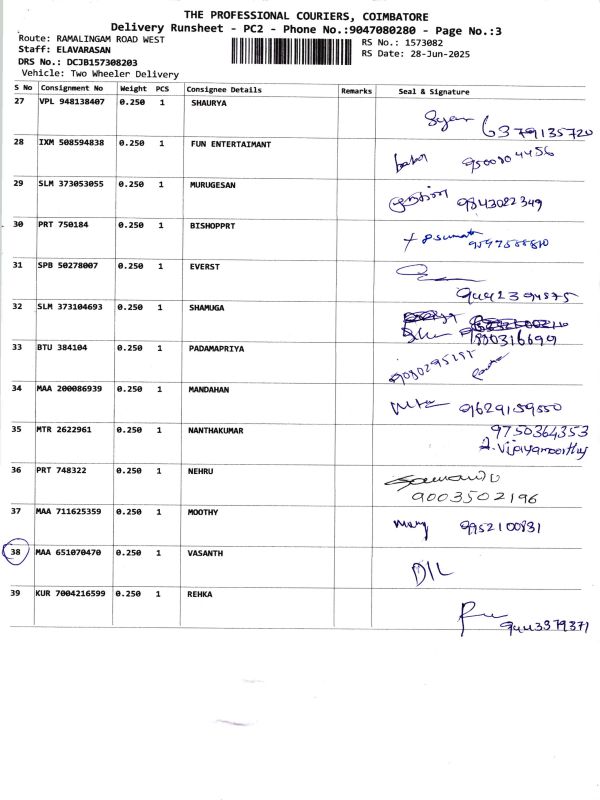 THE PROFESSIONAL COURIERS, COIMBATORE
Delivery Runsheet - PC2 - Phone No.:9047080280 - Page No.:3
Route: RAMALINGAM ROAD WEST
RS No.: 1573082
Staff: ELAVARASAN
RS Date: 28-Jun-2025
DRS No.: DCJB157308203
Vehicle: Two Wheeler Delivery
S No Consignment No Weight PCS Consignee Details Remarks Seal & Signature
27 VPL 948138407 0.250 1 SHAURYA
6379135720
28 IXM 508594838 0.250 1 FUN ENTERTAIMANT
9500804456
29 SLM 373053055 0.250 1 MURUGESAN
9843022349
30 PRT 750184 0.250 1 BISHOPPRT
31 SPB 50278007 0.250 1 EVERST
9442394875
32 SLM 373104693 0.250 1 SHAMUGA
33 BTU 384104 0.250 1 PADAMAPRIYA
34 MAA 200086939 0.250 1 MANDAHAN
9629159550
35 MTR 2622961 0.250 1 NANTHAKUMAR
9750364353
A.Vijayamoorthy
36 PRT 748322 0.250 1 NEHRU
9003502196
37 MAA 711625359 0.250 1 MOOTHY
9952100831
38 MAA 651070470 0.250 1 VASANTH
D/L
39 KUR 7004216599 0.250 1 REHKA
9443379371